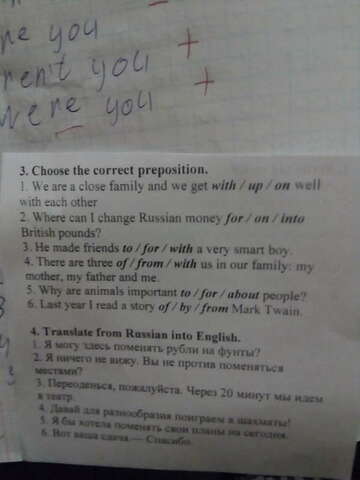 re you
ren't you
Were you
3. Choose the correct preposition.
1. We are a close family and we get with / up / on well
with each other
2. Where can I change Russian money for / on / into
British pounds?
3. He made friends to / for / with a very smart boy.
4. There are three of / from / with us in our family: my
mother, my father and me.
5. Why are animals important to / for / about people?
6. Last year I read a story of / by / from Mark Twain.
4. Translate from Russian into English.
1. Я могу здесь поменять рубли на фунты?
2. Я ничего не вижу. Вы не против поменяться
местами?
3. Переоденься, пожалуйста. Через 20 минут мы идем
в театр.
4. Давай для разнообразия поиграем в шахматы!
5. Я бы хотела поменять свои планы на сегодня.
6. Вот ваша сдача.— Спасибо.